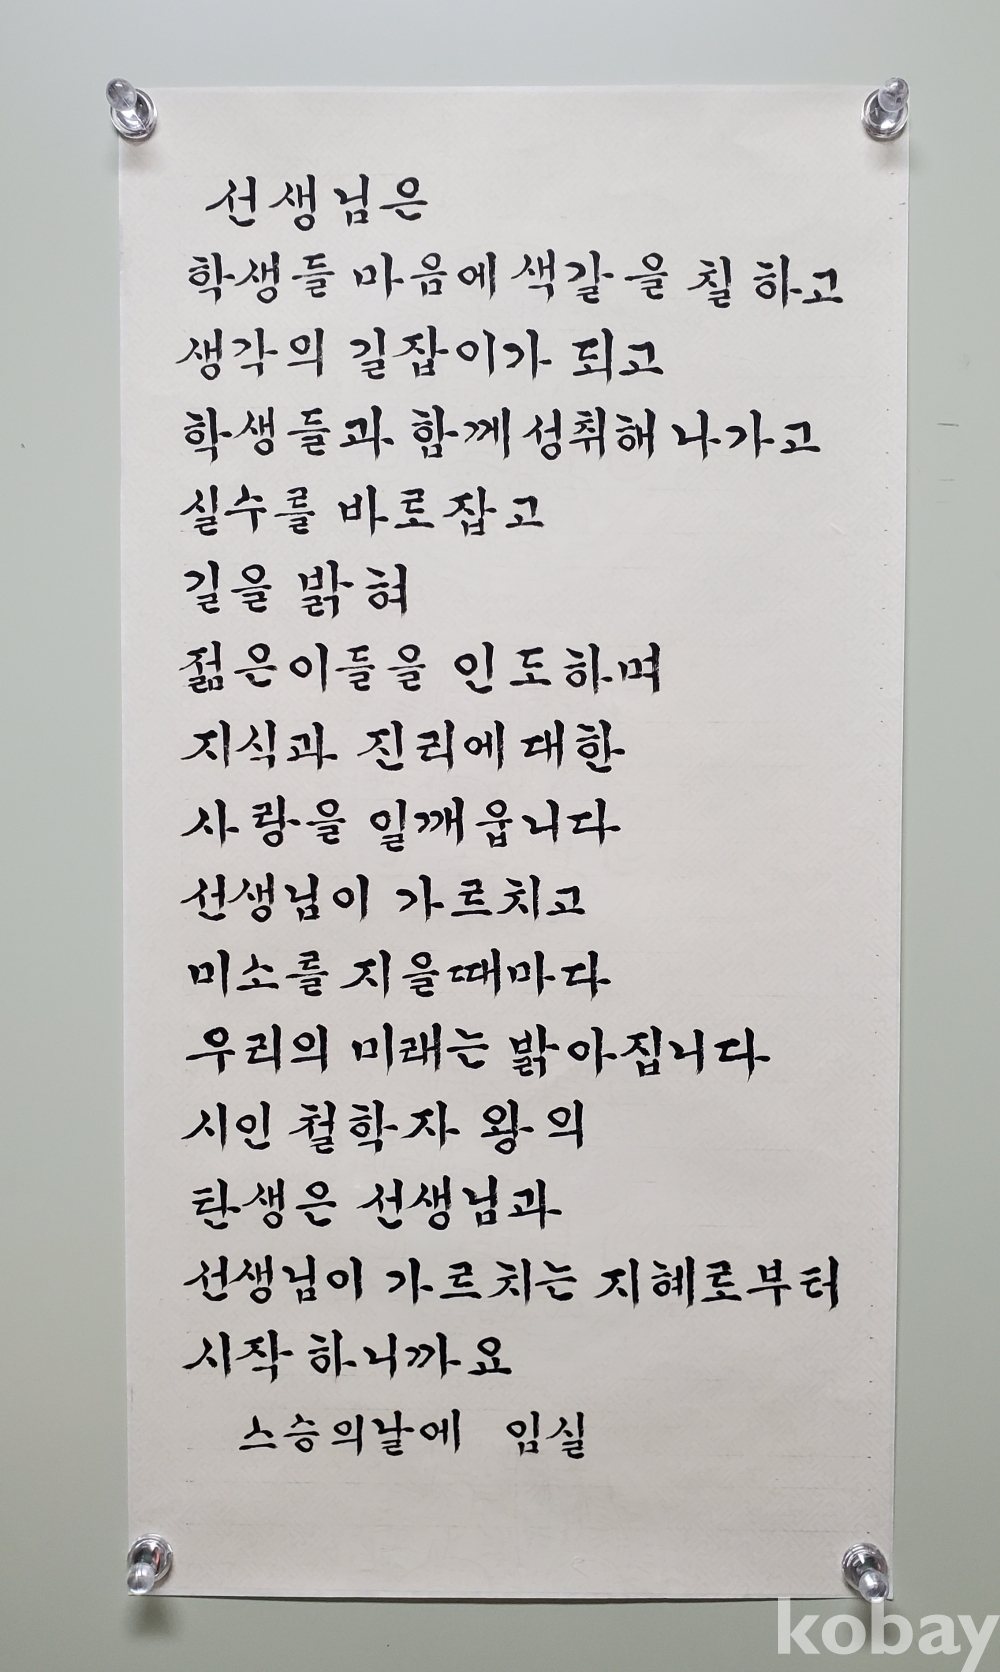 선생님은
학생들 마음에 색갈을 칠 하고
생각의 길잡이가 되고
학생들과 함께 성취해 나가고
실수를 바로잡고
길을 밝혀
젊은이들을 인도하며
지식과 진리에 대한
사랑을 일깨웁니다
선생님이 가르치고
미소를 지을때마다
우리의 미래는 밝아집니다
시인 철학자 왕의
탄생은 선생님과
선생님이 가르치는 지혜로부터
시작 하니까요
스승의날에 임실
kobay